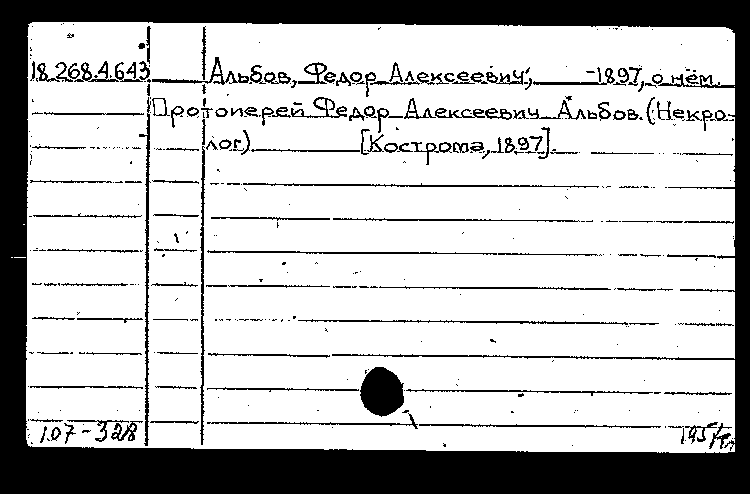 18.268.4.643 Альбов, Федор Алексеевич, -1897, о нём.
Протоиерей Федор Алексеевич Альбов. (Некро-
лог) [Кострома, 1897].
107-328